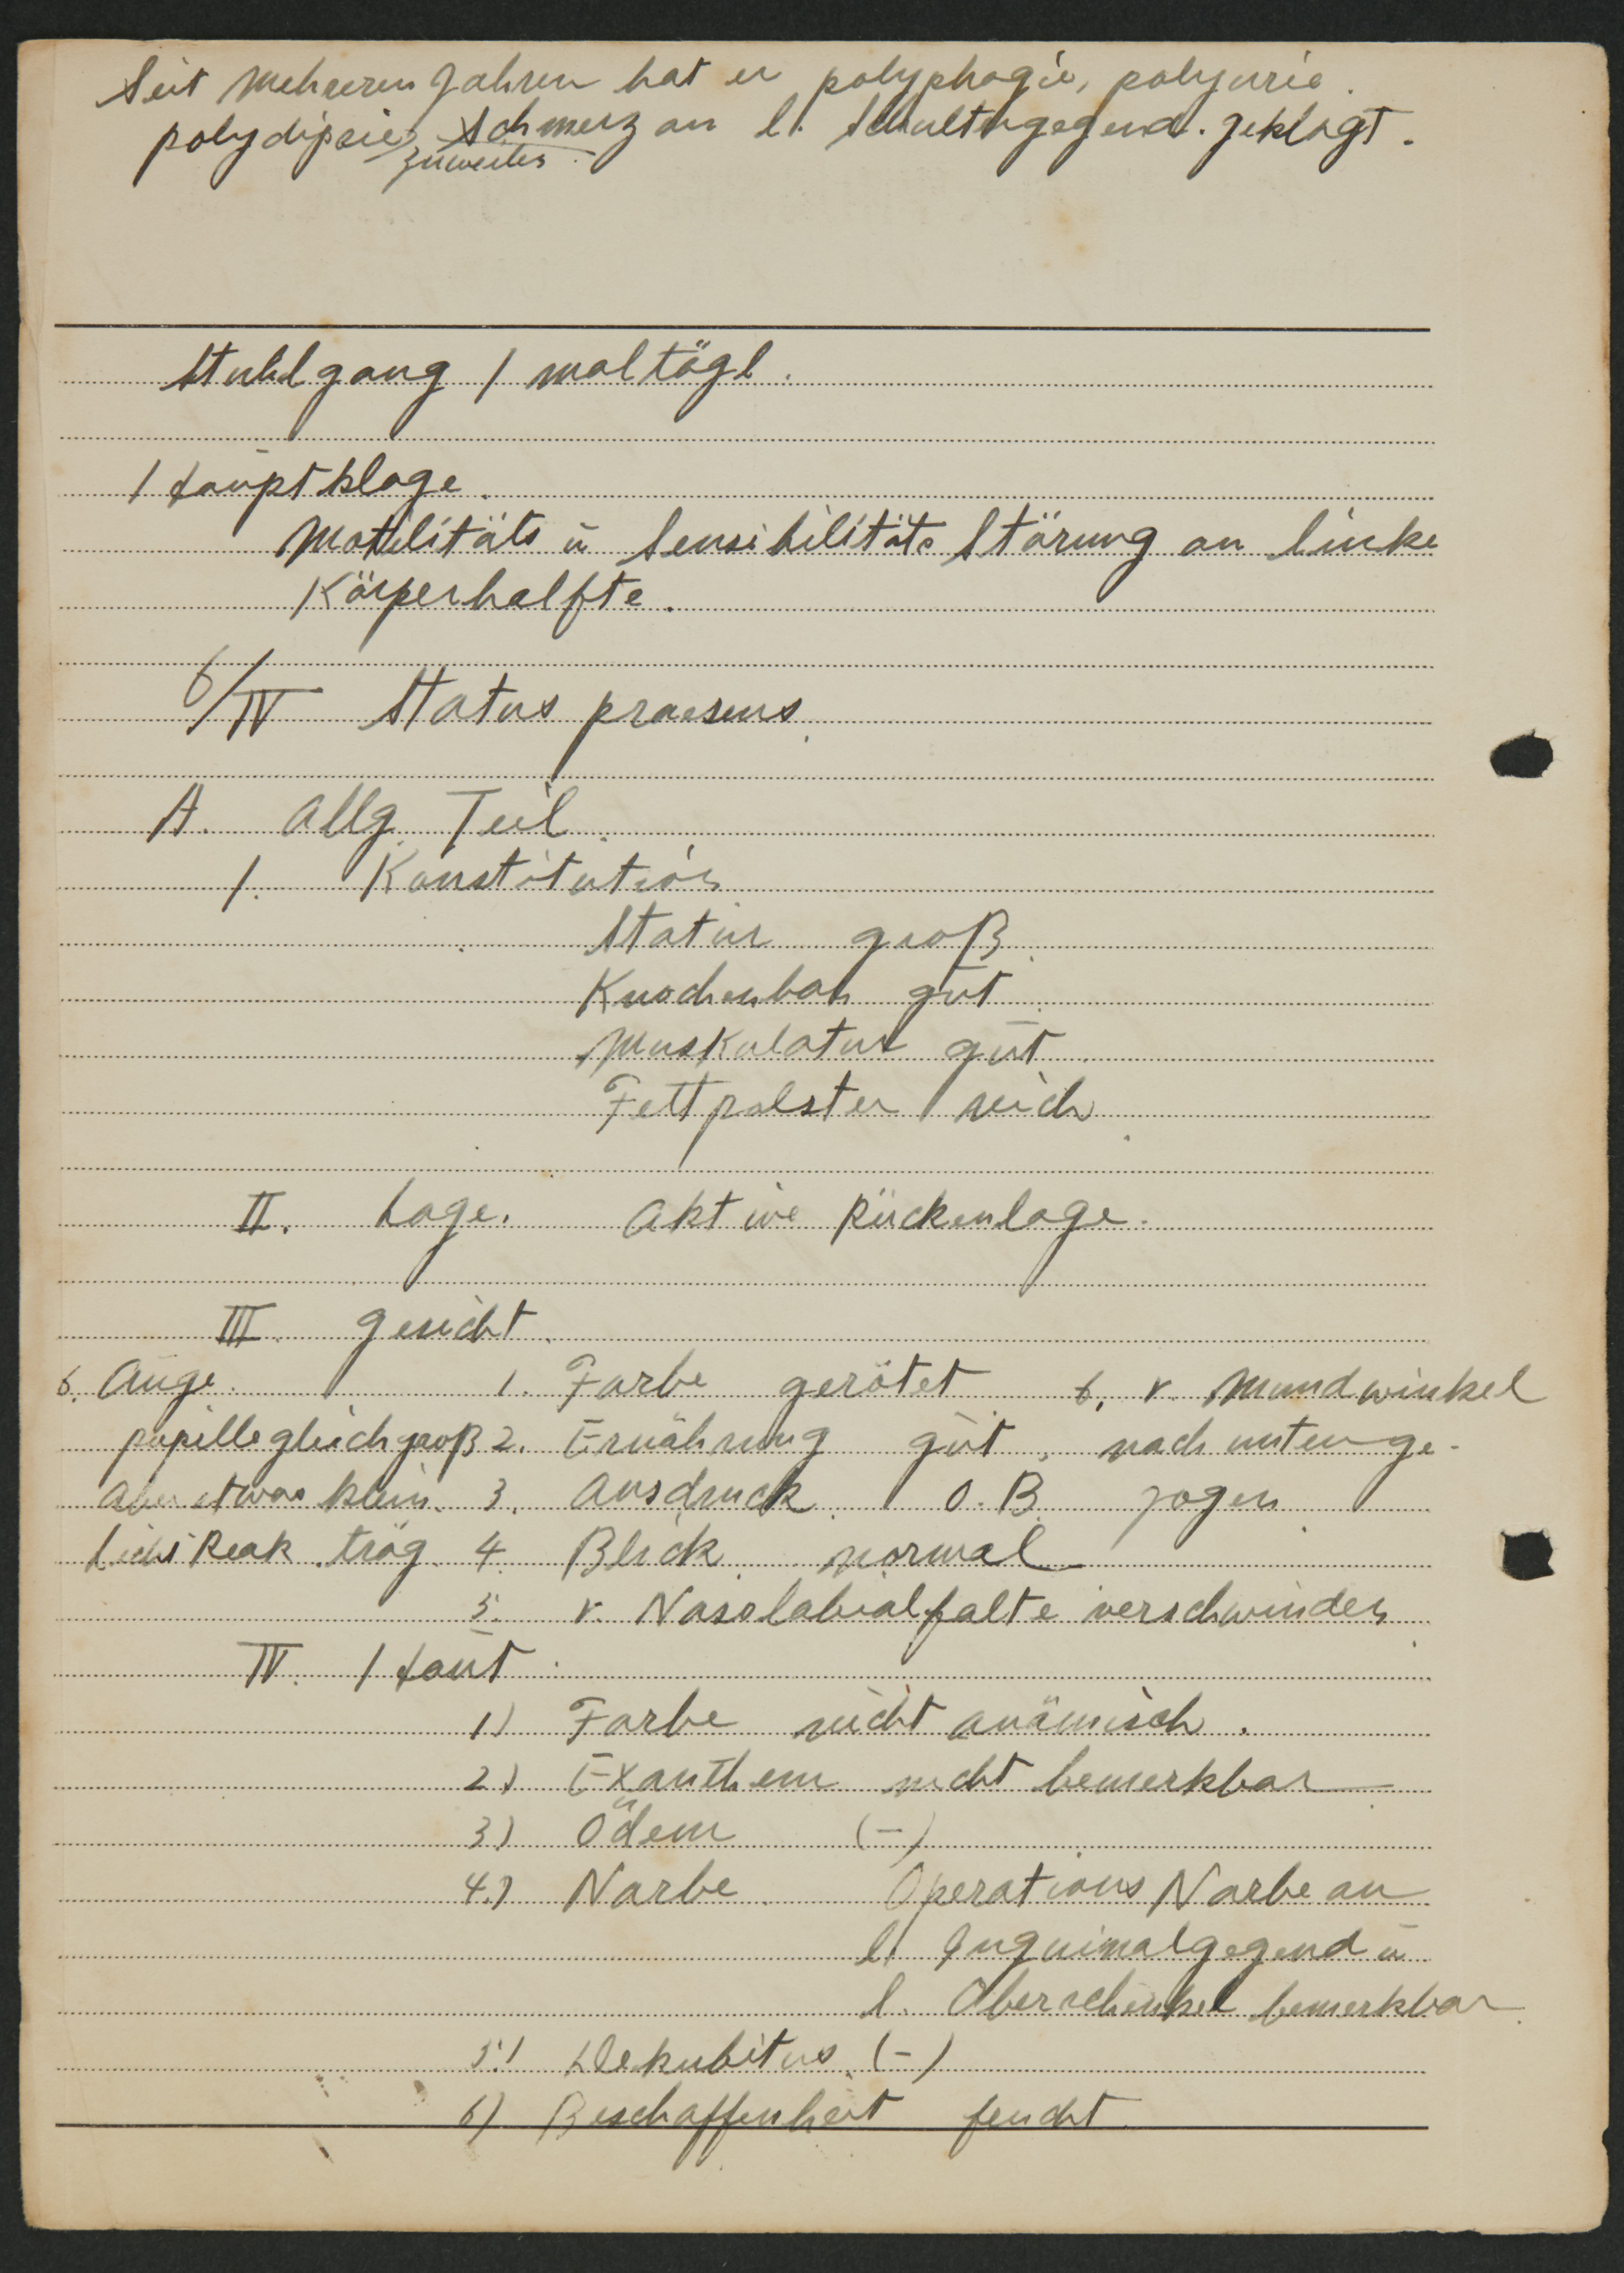 Seit mehreren Jahren hat er polyphagie, polyurie.
polydipsie, Schmerz an l. Schultergegend. geklagt.
zuweilen
Stuhlgang 1 mal tägl.
Hauptklage.
Motilitäts u Sensibilitäts Störung an linke
Körperhalfte.
6/IV Status praesens.
A. Allg. Teil.
1. Konstitution
Statur groß.
Knochenbau gut.
Muskulatur gut.
Fettpolster reich.
II. Lage. Aktive Rückenlage.
III. Gesicht.
6. Auge. 1. Farbe gerötet 6. r. Mundwinkel
pupille gleich groß 2. Ernährung gut, nach unten ge-
aber etwas klein. 3. Ausdruck. O.B. zogen.
Licht Reak. träg. 4. Blick. normal
5. r. Nasolabialfalte verschwinden.
IV. Haut.
1) Farbe nicht anämisch.
2) Exanthem nicht bemerkbar
3) Ödem (-)
4.) Narbe. Operations Narbe an
l. Inguinalgegend u
l. Oberschenkel bemerkbar.
5.) Dekubitus (-)
6) Beschaffenheit feucht.